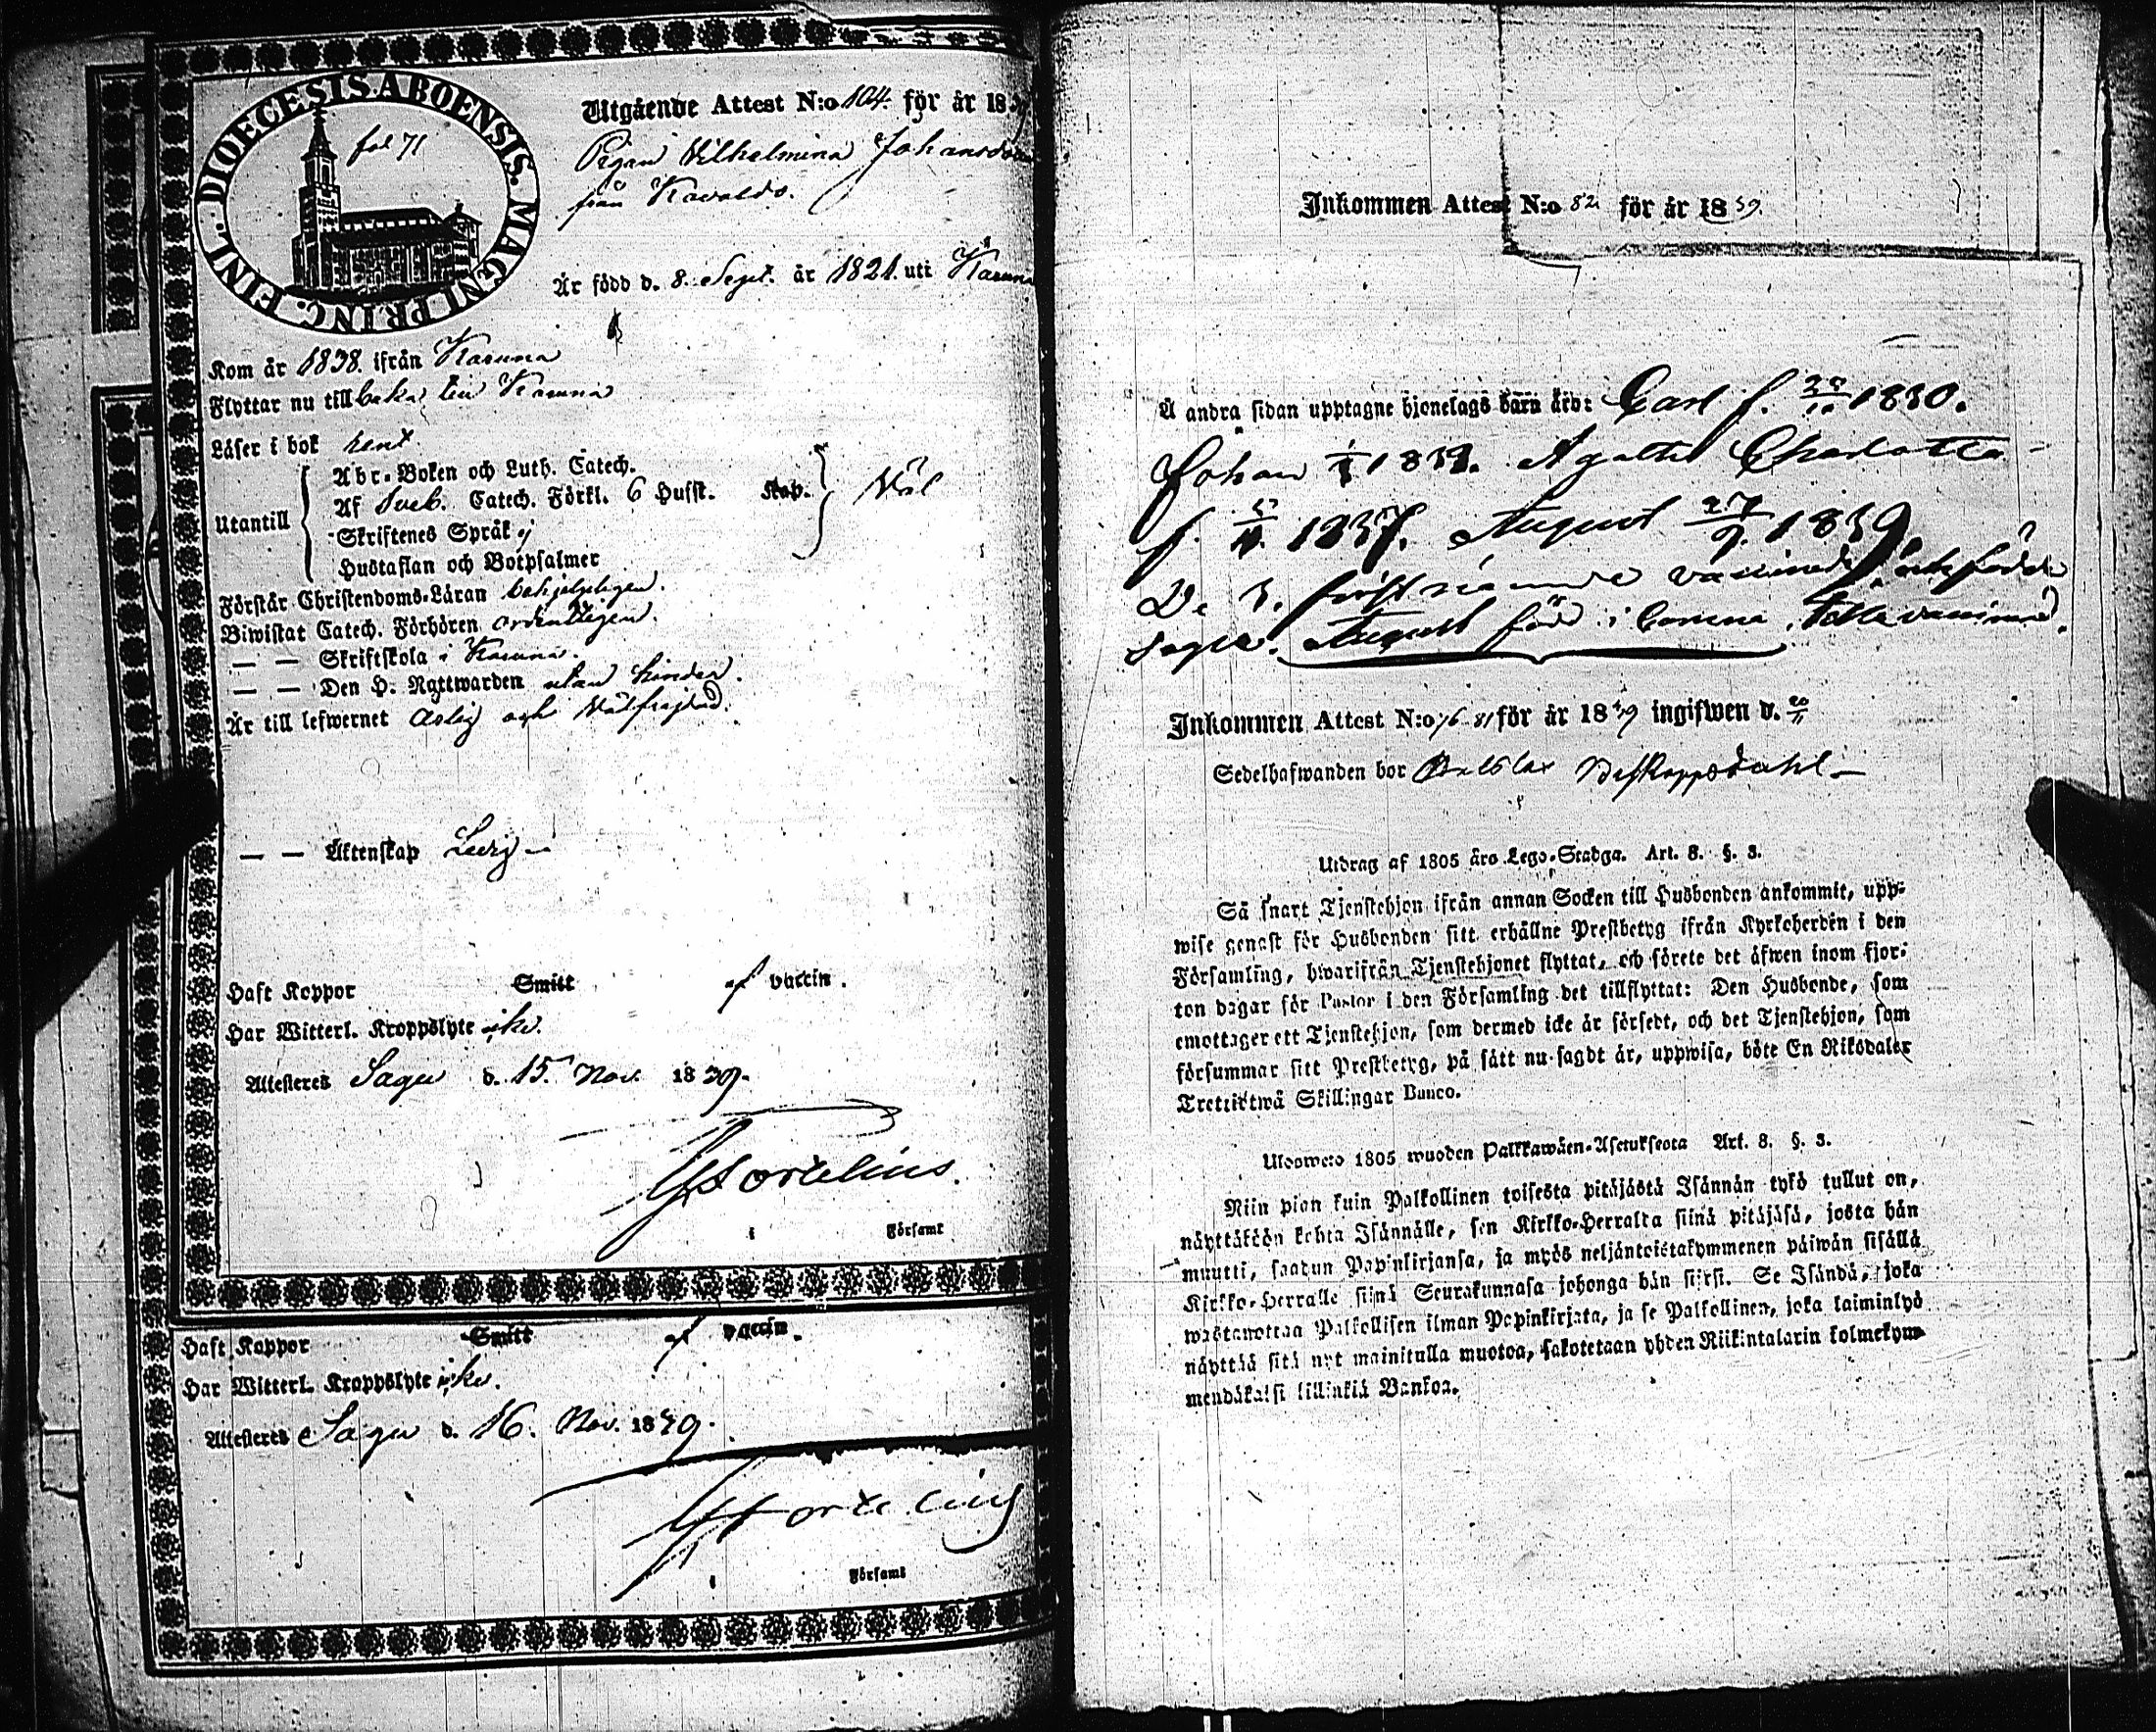 DIOECESIS ABOENSIS. MAGNI PRINC. FINL.
fol 71
Utgående Attest N:o 104. för år 18
Pigan Wilhelmina Johansdotter
från
Är född d. 8. Sept. år 1821. uti Karuna
Kom år 1838. ifrån Karuna
Flyttar nu till baka till Karuna
Läser i bok rent
Utantill
Abc-Boken och Luth. Catech.
Af Sveb. Catech. Förkl. 6 Husst. Kap.
Skriftenes Språk ej
Hustaflan och Botpsalmer
Väl
Förstår Christendoms-Läran behjelpligen.
Biwistat Catech. Förhören ordentligen.
— — Skriftskola i Karuna.
— — Den H. Nattwarden utan hinder.
Är till lefwernet ärlig och välfrejdad.
— — Äktenskap Ledig —
Haft Koppor Smitt af vaccin.
Har Witterl. Kroppslyte icke.
Attesteres Sagu d. 15. Nov. 1839.
Hortelius.
Församl
Haft Koppor Smitt af vaccin.
Har Witterl. Kroppslyte icke.
Attesteres Sagu d. 16. Nov. 1839.
Hortelius
Församl
Inkommen Attest N:o 82 för år 1839.
Å andra sidan upptagne hjonelags barn äro: Carl f. 1830.
Johan Agatha Charlotta
f. 1837. August 27/9 1839
De 3. först nämnde vaccinerade, och födde
i August född i Coruna,
Inkommen Attest N:o 81 för år 1839 ingifwen d. 20/11
Sedelhafwanden bor
Utdrag af 1805 års Lego-Stadga. Art. 8. §. 3.
Så snart Tjenstehjon ifrån annan Socken till Husbonden ankommit, upp-
wise genast för Husbonden sitt erhållne Prestbetyg ifrån Kyrkoherden i den
Församling, hwarifrån Tjenstehjonet flyttat, och förete det äfwen inom fjor-
ton dagar för Pastor i den Församling det tillflyttat: Den Husbonde, som
emottager ett Tjenstehjon, som dermed icke är försedt, och det Tjenstehjon, som
försummar sitt Prestbetyg, på sätt nu sagdt är, uppwisa, böte En Riksdaler
Trettiotwå Skillingar Banco.
Uloswето 1805 wuoden Palkkawäen-Asetuksesta Art. 8. §. 3.
Niin pian kuin Palkollinen toisesta pitäjästä Isännän tykö tullut on,
näyttäköön kohta Isännälle, sen Kirkko-Herralta siinä pitäjäsä, josta hän
muutti, saadun Papinkirjansa, ja myös neljäntoistakymmenen päiwän sisällä
Kirkko-Herralle siinä Seurakunnasa johonga hän siirsi. Se Isändä, joka
wastanottaa Palkollisen ilman Papinkirjata, ja se Palkollinen, joka laiminlyö
näyttää sitä nyt mainitulla muotoa, sakotetaan yhden Riikintalarin kolmekym-
mendäkaksi killinkiä Bankoa.